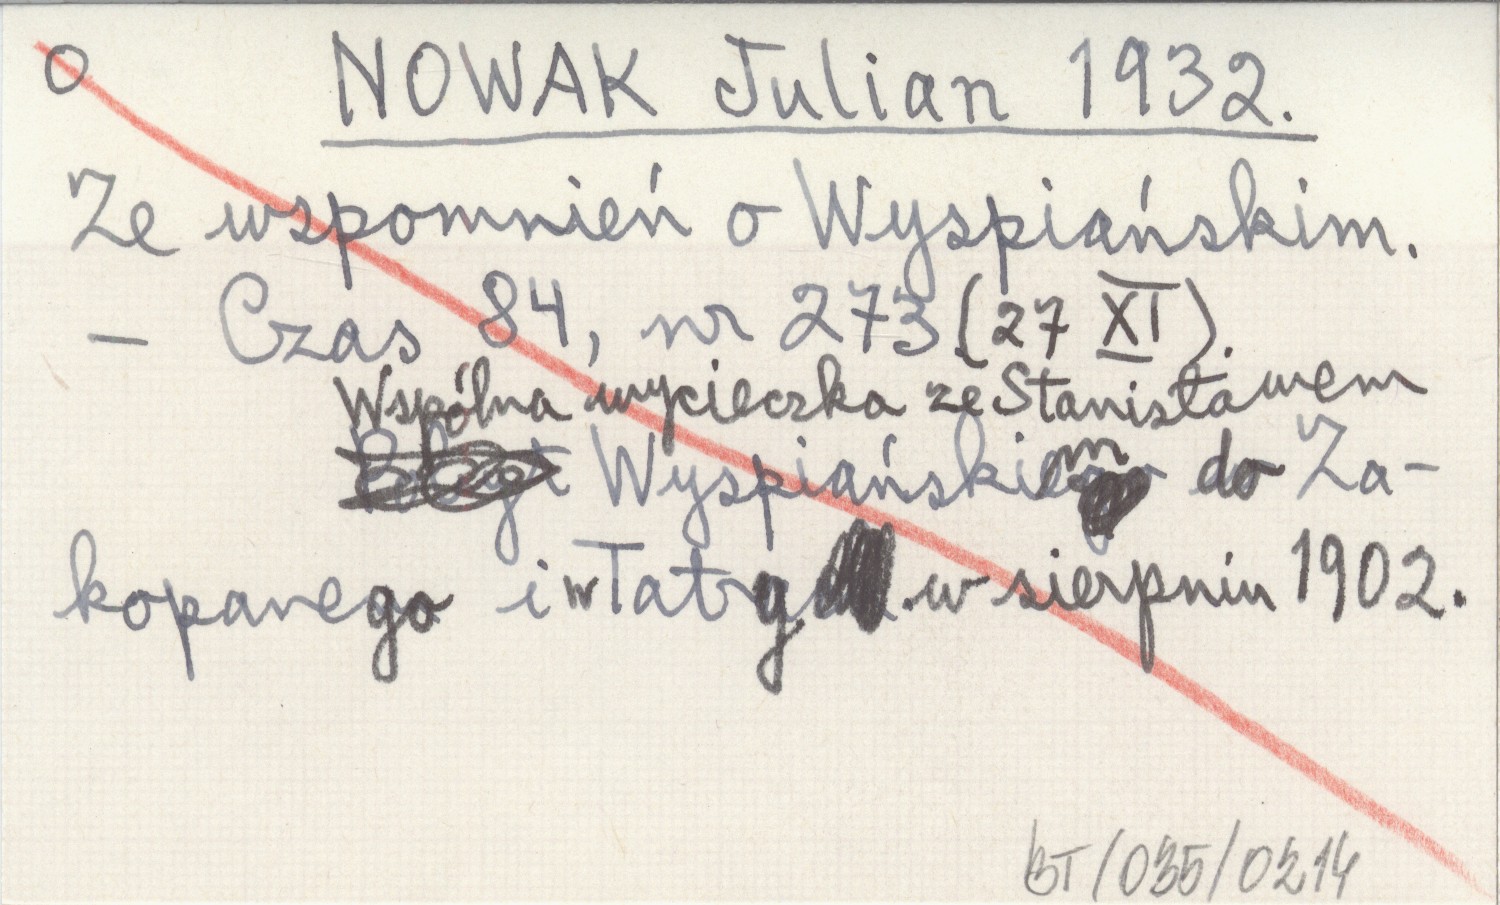 O NOWAK Julian 1932.
Ze wspomnień o Wyspiańskim.
– Czas 84, nr 273 (27 XI).
Wspólna wycieczka ze Stanisławem
Wyspiańskim do Za-
kopanego i w Tatry w sierpniu 1902.
BT/035/0214